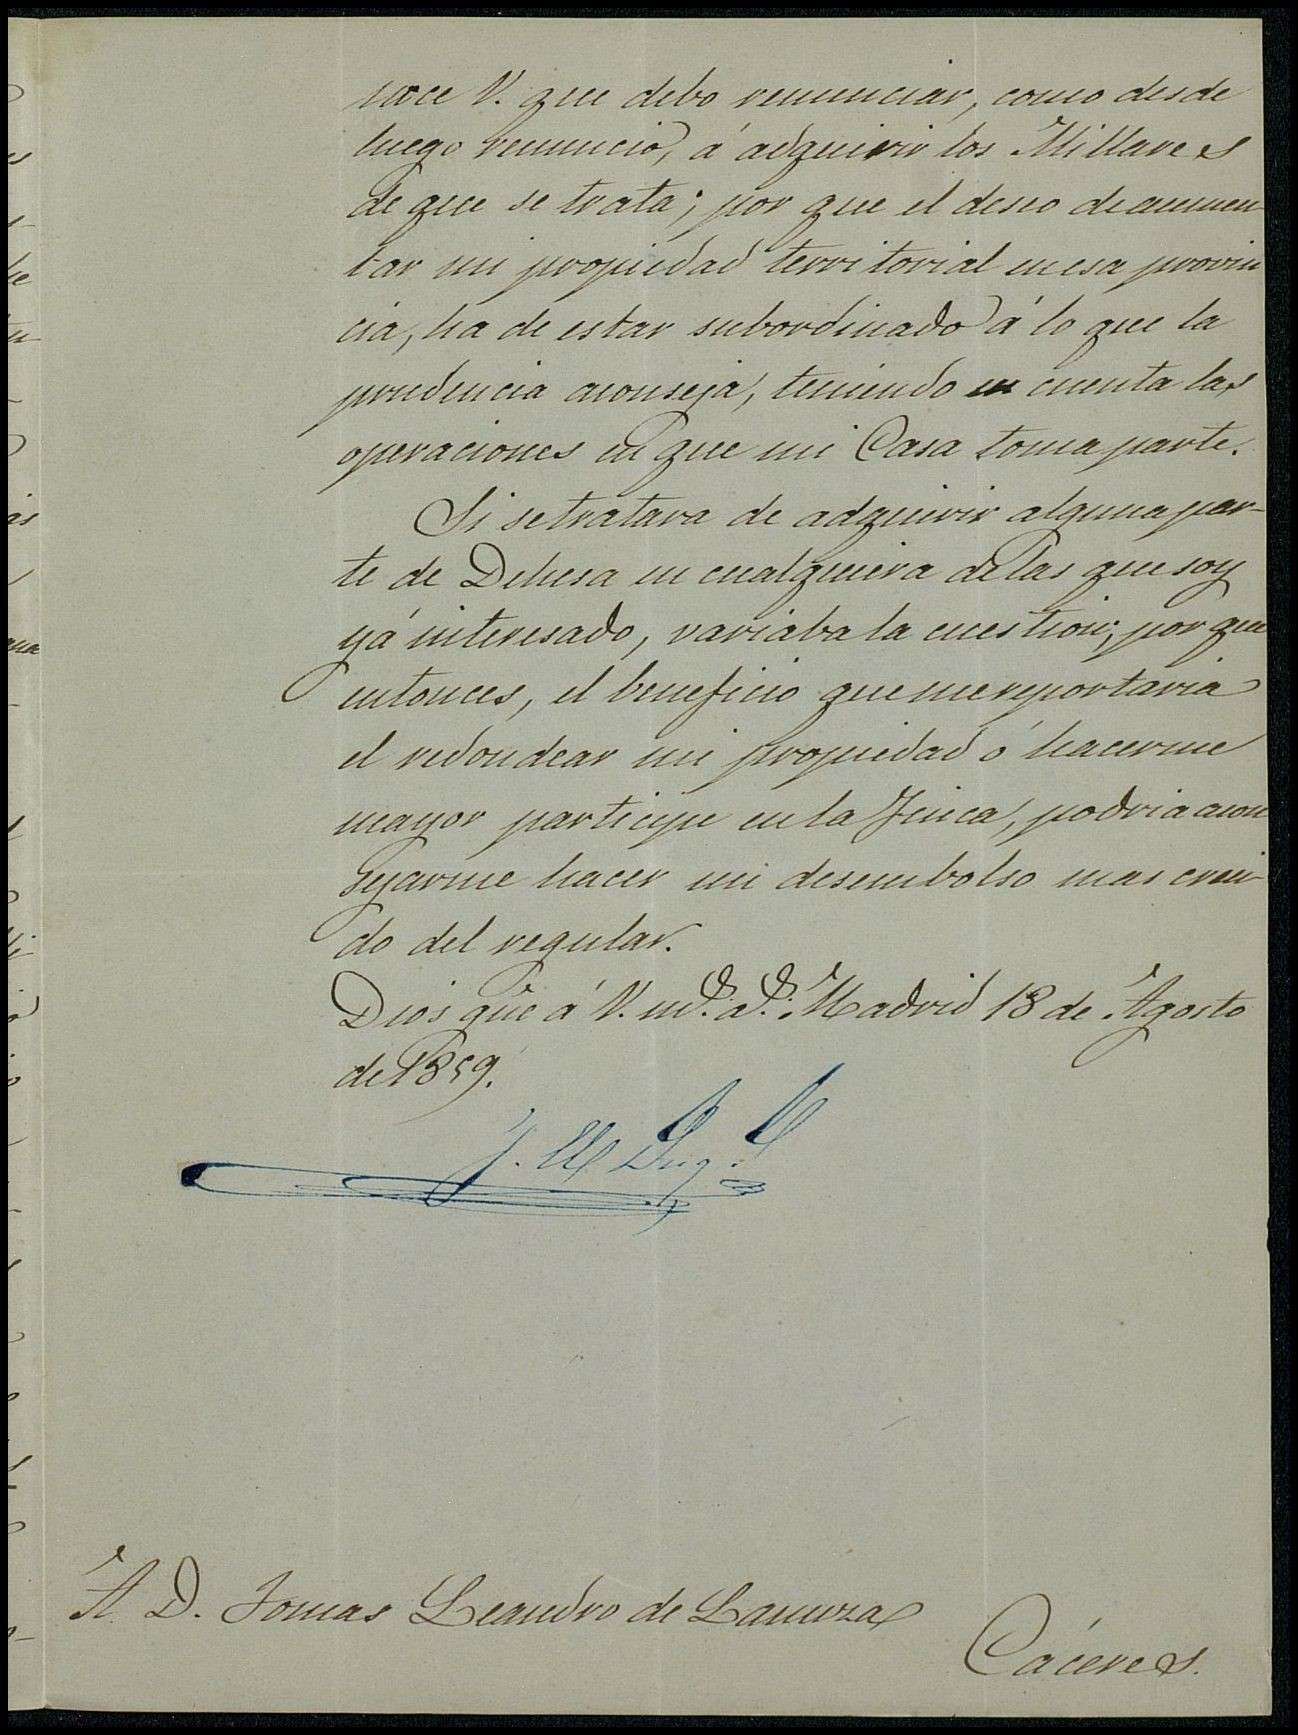 noce V. que debo renunciar, como desde
luego renuncio, á adquirir los Millares
de que se trata; por que el deseo de aumen-
tar mi propiedad territorial en esa provin
cia, ha de estar subordinado á lo que la
prudencia aconseja, teniendo en cuenta las
operaciones en que mi Casa toma parte.
Si se tratara de adquirir alguna par-
te de Dehesa en cualquiera de las que soy
yá interesado, variaba la cuestion, por que
entonces, el beneficio que me reportaria
el redondear mi propiedad ó hacerme
mayor participe en la Finca, podria acon
sejarme hacer un desembolso mas creci-
do del regular.
Dios gûe á V. m.s a.s Madrid 18 de Agosto
de 1859.
A D. Tomas Leandro de Lanuza
Cáceres.